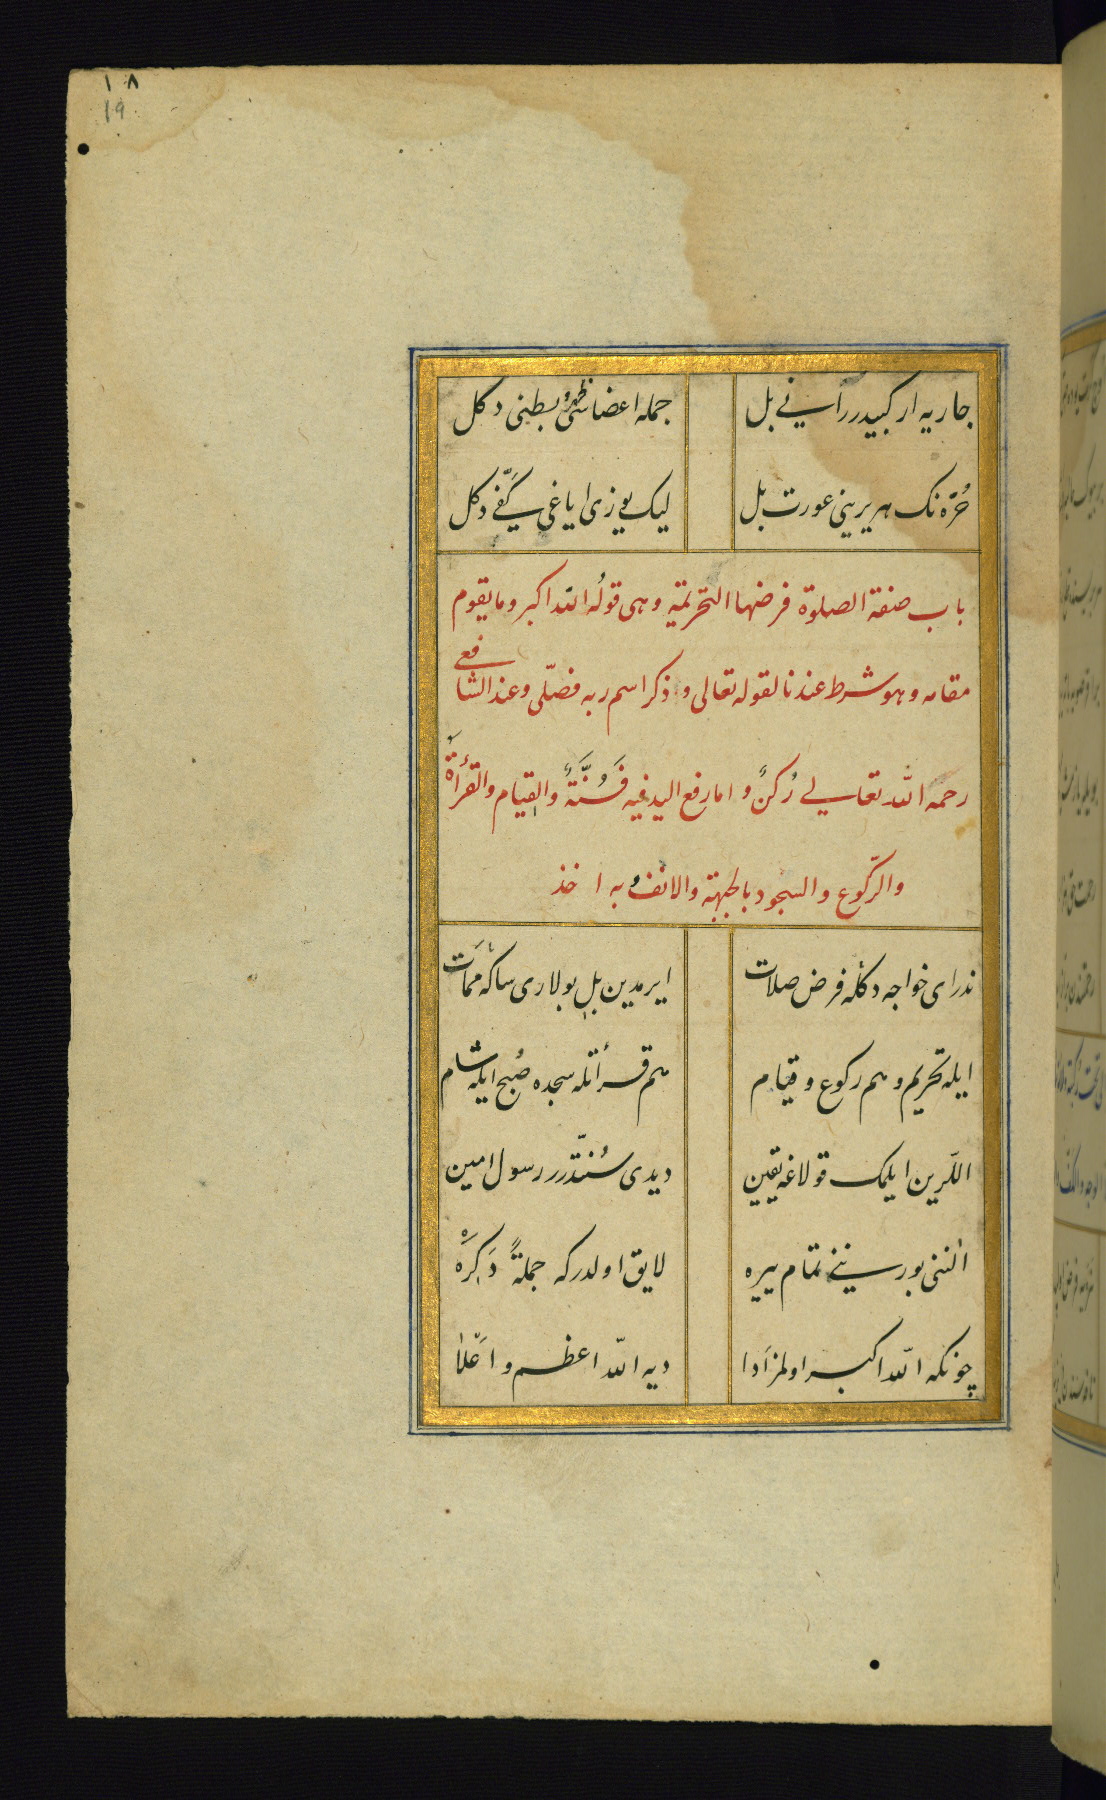 ١٨
19
جاریه ار کبیدر رآسنی بل
جمله اعضا ظهری و بطنی دکل
حُرّه نک هر یرینی عورت بل
لیک یوزی ایاغی کفّی دکل
باب صفة الصلوة فرضها التحریمة وهی قولُه الله اکبر وما یقوم
مقامه وهو شرط عندنا لقوله تعالی وذکر اسم ربه فصلّی وعند الشافعی
رحمه الله تعالی رُکنٌ و اما رفع الید فیه فَسُنَّةٌ والقِیام والقرأةُ
والرّکوع والسجود بالجبهة والانف وبه اخذ
ندر ای خواجه دکله فرض صلات
ایرمدین بل بولاری ساکه ممَات
ایله تحریم و هم رکوع و قیام
هم قرأتله سجده صُبح ایله شام
اللّرین ایلمک قولاغه یقین
دیدی سُنّتدرر رسول امین
النی بورنینی تمام ییره
لایق اولدر که جملةً دَکِرَه
چونکه الله اکبر اولمز اَدا
دیه الله اعظم و اَعْلاٰ